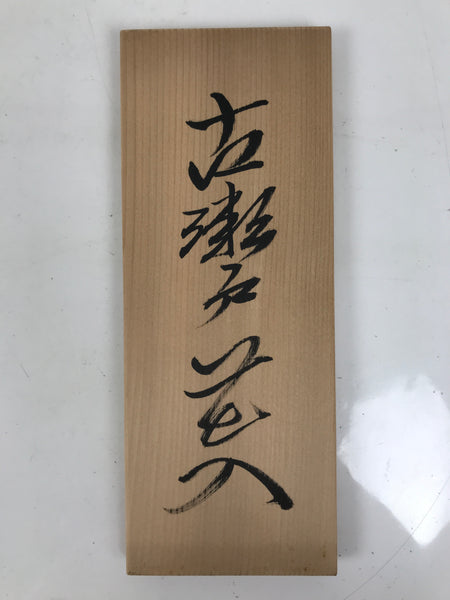 古瀬戸花入